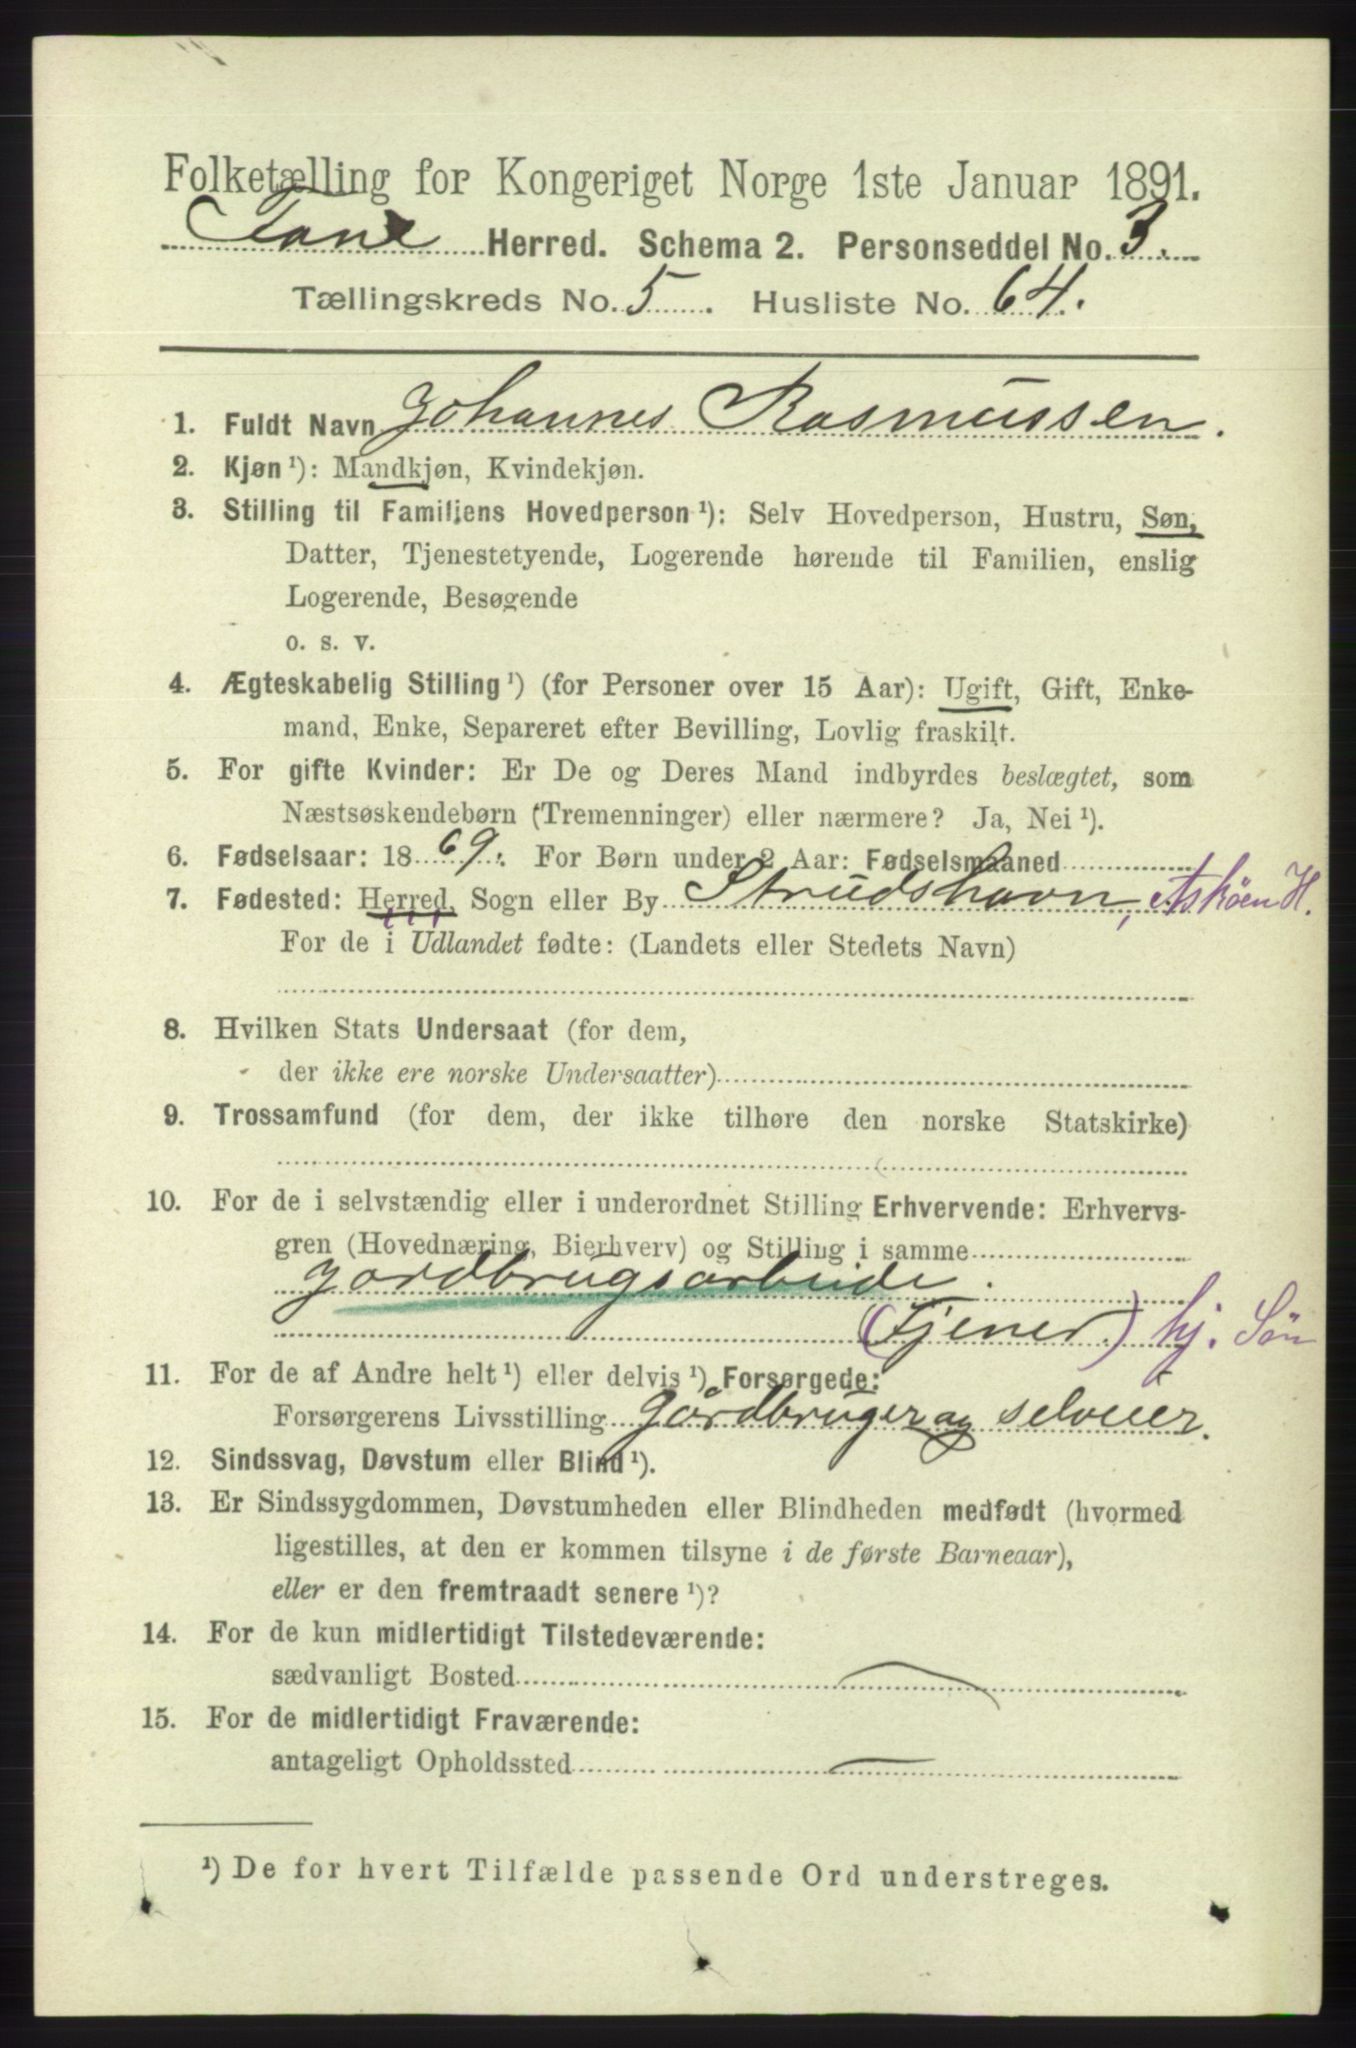 Folketælling for Kongeriget Norge 1ste Januar 1891.
Fane Herred. Schema 2. Personseddel No. 3.
Tællingskreds No. 5. Husliste No. 64.
1. Fuldt Navn Johannes Rasmussen.
2. Kjøn ¹): Mandkjøn, Kvindekjøn.
3. Stilling til Familiens Hovedperson ¹): Selv Hovedperson, Hustru, Søn,
Datter, Tjenestetyende, Logerende hørende til Familien, enslig
Logerende, Besøgende
o. s. v.
4. Ægteskabelig Stilling ¹) (for Personer over 15 Aar): Ugift, Gift, Enke-
mand, Enke, Separeret efter Bevilling, Lovlig fraskilt.
5. For gifte Kvinder: Er De og Deres Mand indbyrdes beslægtet, som
Næstsøskendebørn (Tremenninger) eller nærmere? Ja, Nei ¹).
6. Fødselsaar: 1869. For Børn under 2 Aar: Fødselsmaaned
7. Fødested: Herred, Sogn eller By Strudshavn, Askøen H.
For de i Udlandet fødte: (Landets eller Stedets Navn)
8. Hvilken Stats Undersaat (for dem,
der ikke ere norske Undersaatter)
9. Trossamfund (for dem, der ikke tilhøre den norske Statskirke)
10. For de i selvstændig eller i underordnet Stilling Erhvervende: Erhvervs-
gren (Hovednæring, Bierhverv) og Stilling i samme
jordbrugsarbeide.
(Tjener.) hj. Søn
11. For de af Andre helt ¹) eller delvis ¹) Forsørgede:
Forsørgerens Livsstilling gårdbruger og selveier.
12. Sindssvag, Døvstum eller Blind ¹).
13. Er Sindssygdommen, Døvstumheden eller Blindheden medfødt (hvormed
ligestilles, at den er kommen tilsyne i de første Barneaar),
eller er den fremtraadt senere ¹)?
14. For de kun midlertidigt Tilstedeværende:
sædvanligt Bosted
15. For de midlertidigt Fraværende:
antageligt Opholdssted
¹) De for hvert Tilfælde passende Ord understreges.